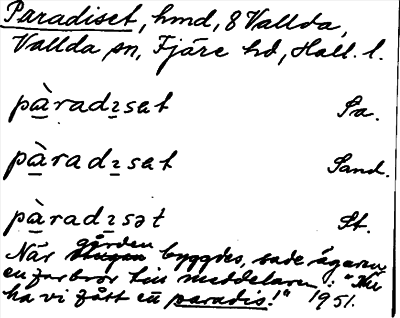 Paradiset, hmd, 8 Vallda,
Vallda sn, Fjäre hd, Hall. l.
pàradɪsat Sa.
pàradɪsat Sand.
pàradɪsət St.
gården
När stugan byggdes, sade ägaren,
en farbror till meddelaren: "Nu
ha vi fått ett paradis!" 1951.